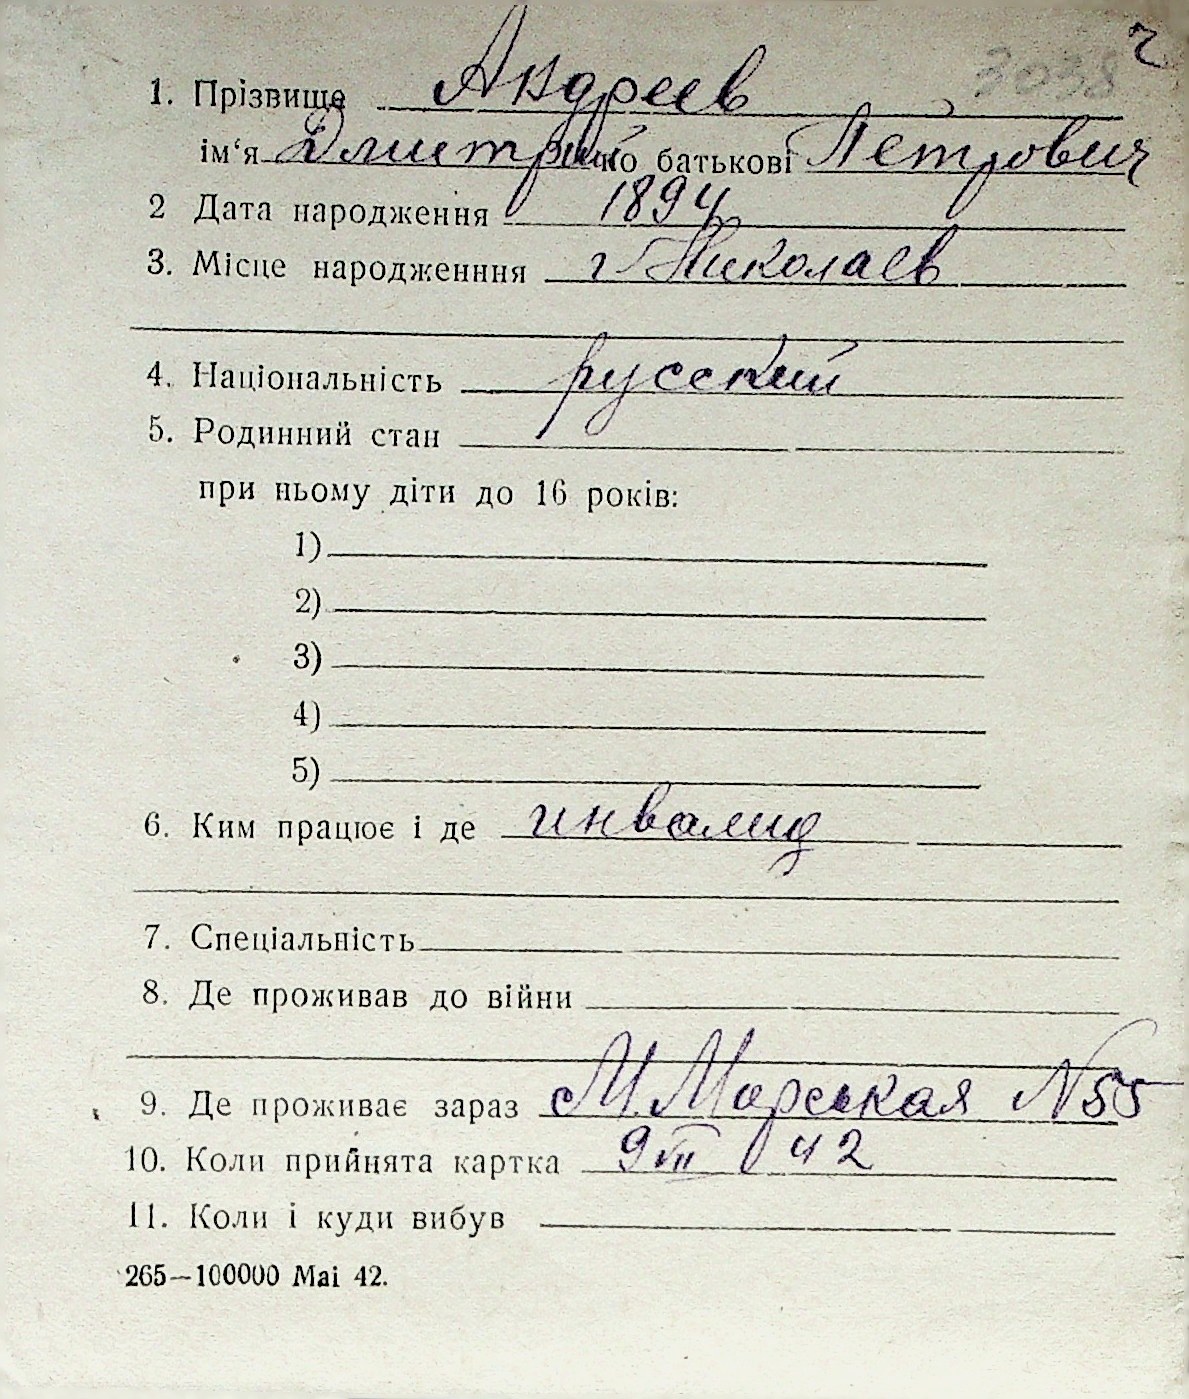 ч
3038
1. Прізвище Андреев
ім‘я Дмитрий по батькові Петрович
2 Дата народження 1894
3. Місце народженння г Николаев
4. Національність русский
5. Родинний стан
при ньому діти до 16 років:
1)
2)
3)
4)
5)
6. Ким працює і де инвалид
7. Спеціальність
8. Де проживав до війни
9. Де проживає зараз М. Морская N 55
10. Коли прийнята картка 9 VII 42
11. Коли і куди вибув
265—100000 Маі 42.